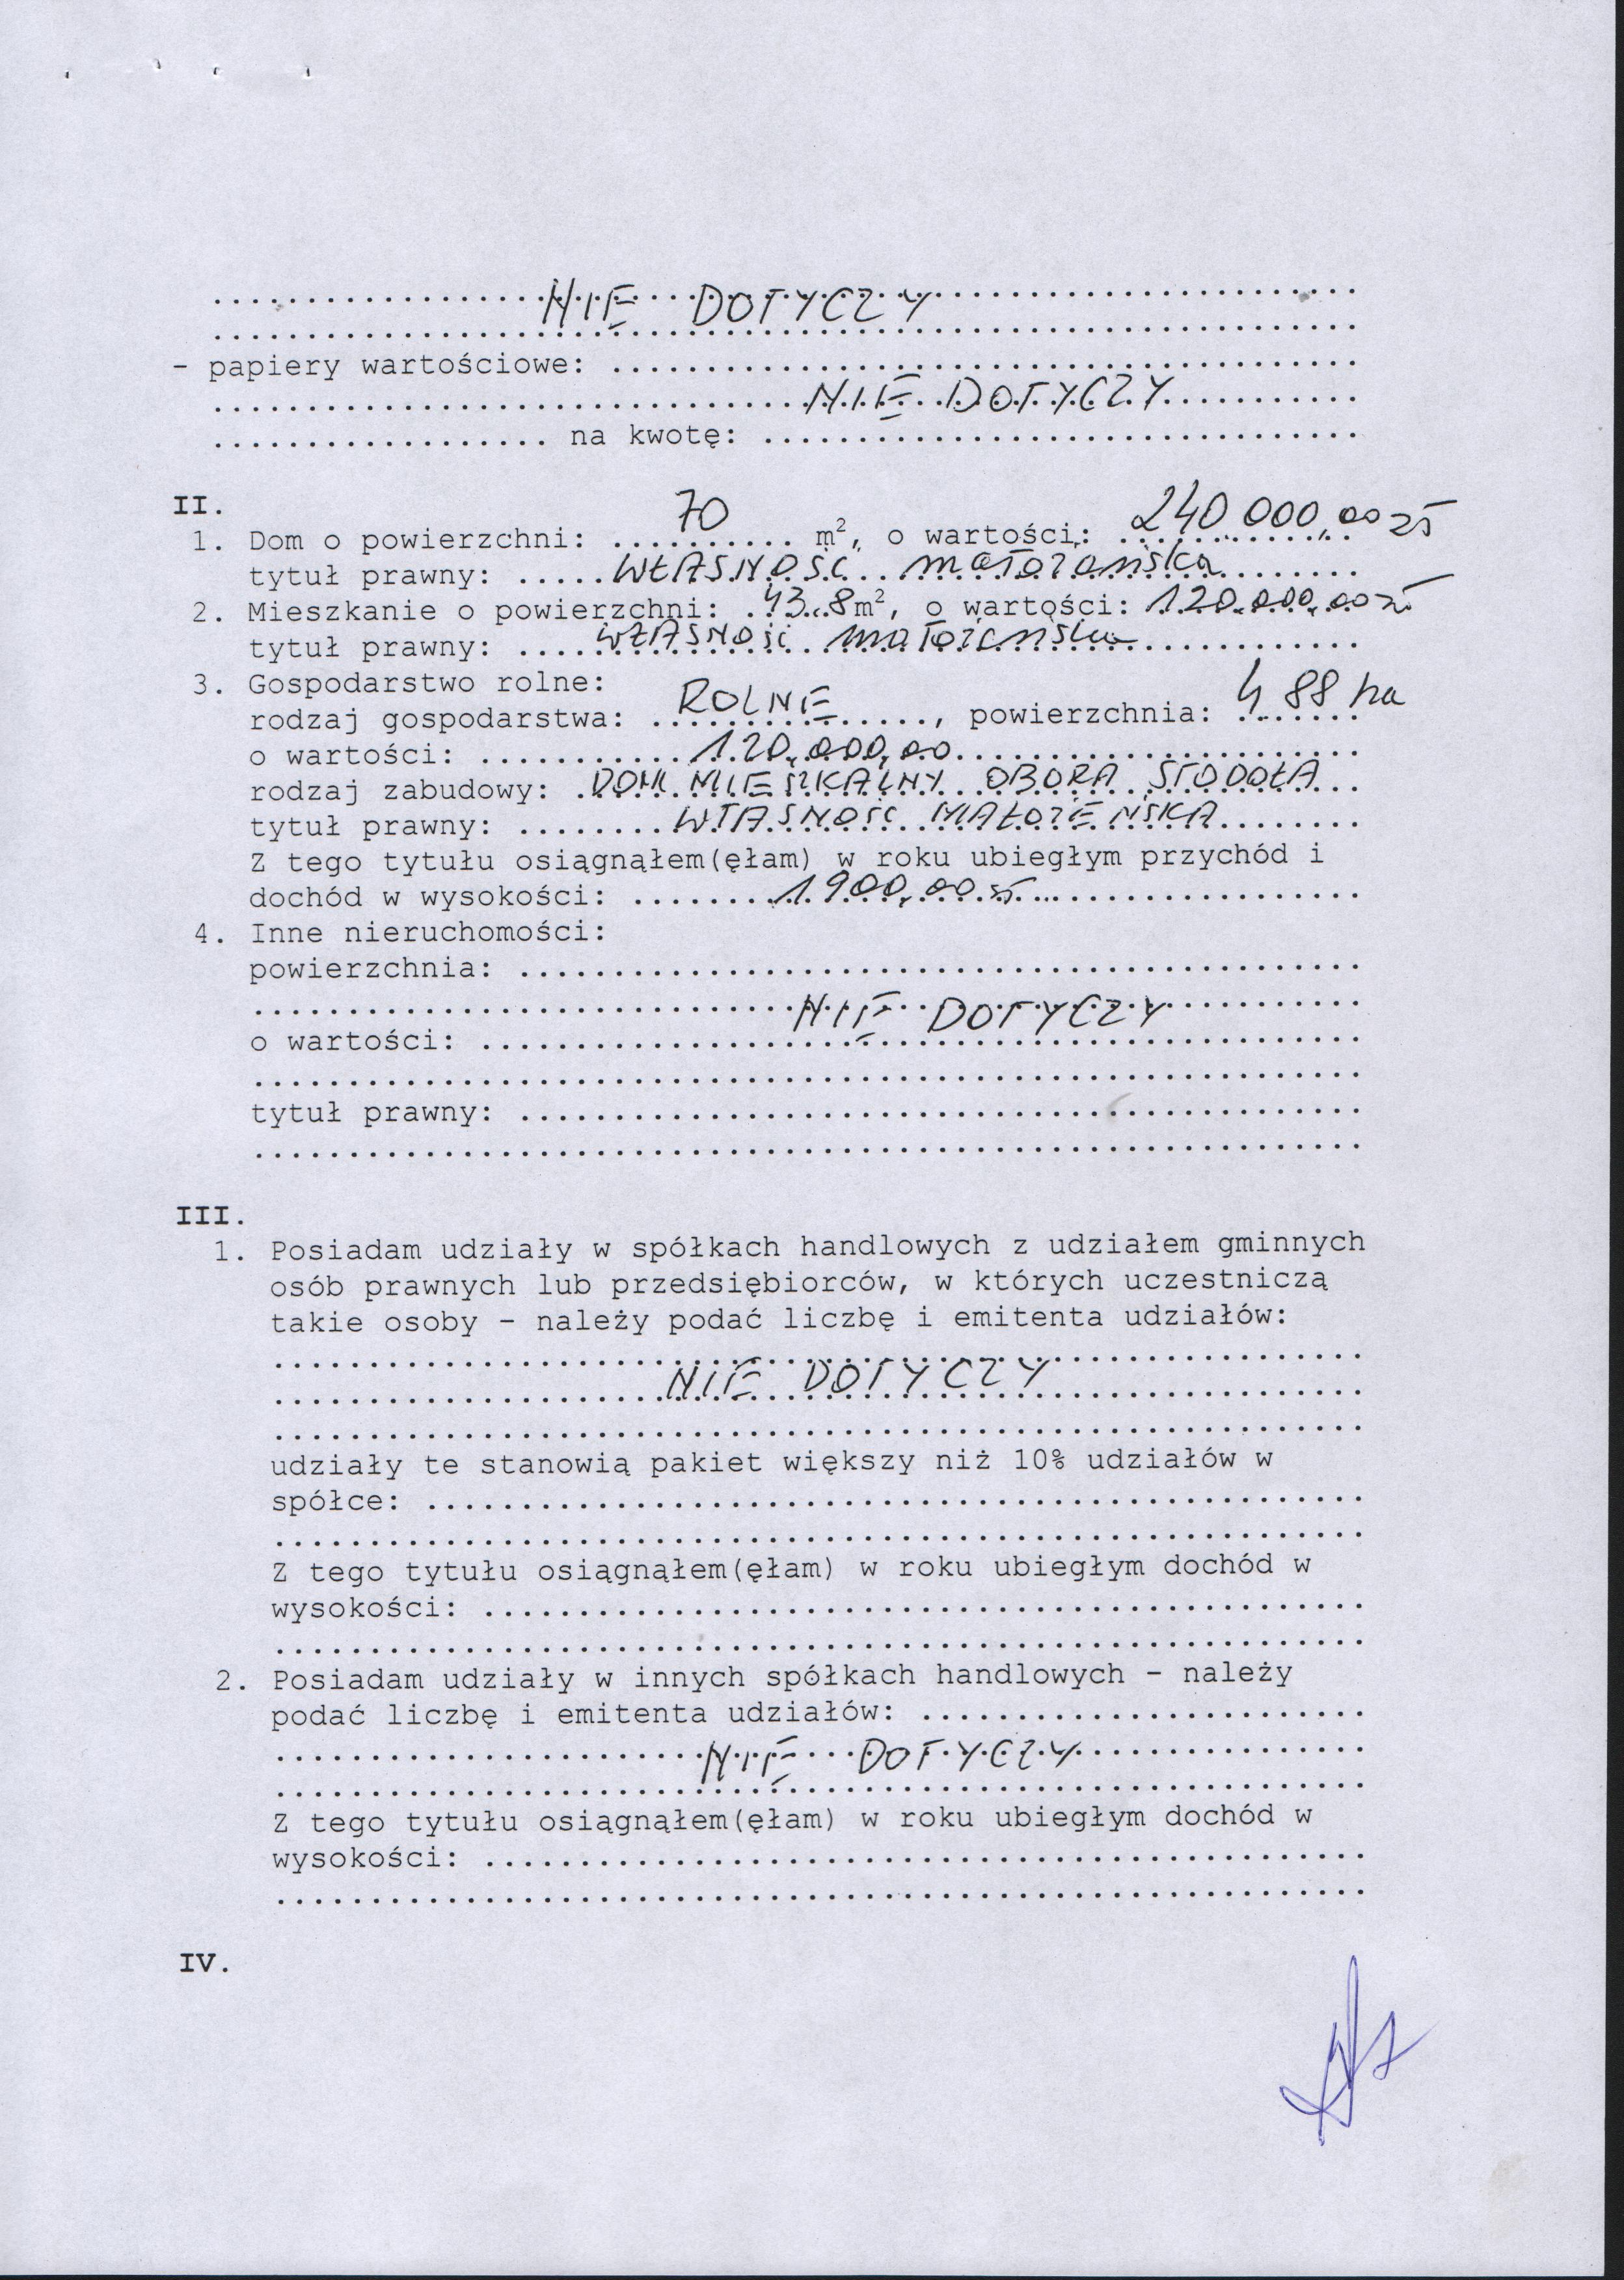 NIE DOTYCZY
- papiery wartościowe:
NIE DOTYCZY
na kwotę:
II.
1. Dom o powierzchni: 70 m², o wartości: 240 000,00 zł
tytuł prawny: WŁASNOŚĆ małżeńska
2. Mieszkanie o powierzchni: 43,8 m², o wartości: 120.000,00 zł
tytuł prawny: WŁASNOŚĆ małżeńska
3. Gospodarstwo rolne:
rodzaj gospodarstwa: ROLNE, powierzchnia: 4 88 ha
o wartości: 120.000,00
rodzaj zabudowy: DOM MIESZKALNY OBORA STODOŁA
tytuł prawny: WŁASNOŚĆ MAŁŻEŃSKA
Z tego tytułu osiągnąłem(ęłam) w roku ubiegłym przychód i
dochód w wysokości: 1900,00 zł
4. Inne nieruchomości:
powierzchnia:
NIE DOTYCZY
o wartości:
tytuł prawny:
III.
1. Posiadam udziały w spółkach handlowych z udziałem gminnych
osób prawnych lub przedsiębiorców, w których uczestniczą
takie osoby - należy podać liczbę i emitenta udziałów:
NIE DOTYCZY
udziały te stanowią pakiet większy niż 10% udziałów w
spółce:
Z tego tytułu osiągnąłem(ęłam) w roku ubiegłym dochód w
wysokości:
2. Posiadam udziały w innych spółkach handlowych - należy
podać liczbę i emitenta udziałów:
NIE DOTYCZY
Z tego tytułu osiągnąłem(ęłam) w roku ubiegłym dochód w
wysokości:
IV.